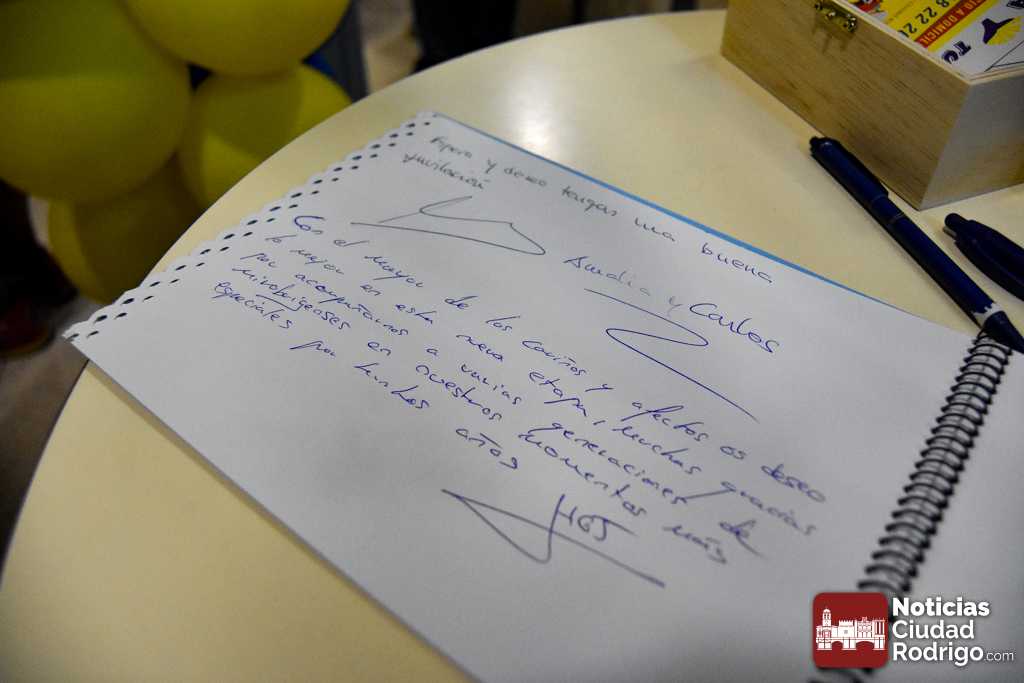 Espero y deseo tengas una buena
jubilación
Amelia y Carlos
Con el mayor de los cariños y afectos os deseo
lo mejor en esta nueva etapa, muchas gracias
por acompañarnos a varias generaciones de
mirobrigenses en nuestros momentos más
especiales por tantos años
Noticias
Ciudad
Rodrigo.com
8 22 2
CIO A DOMICIL